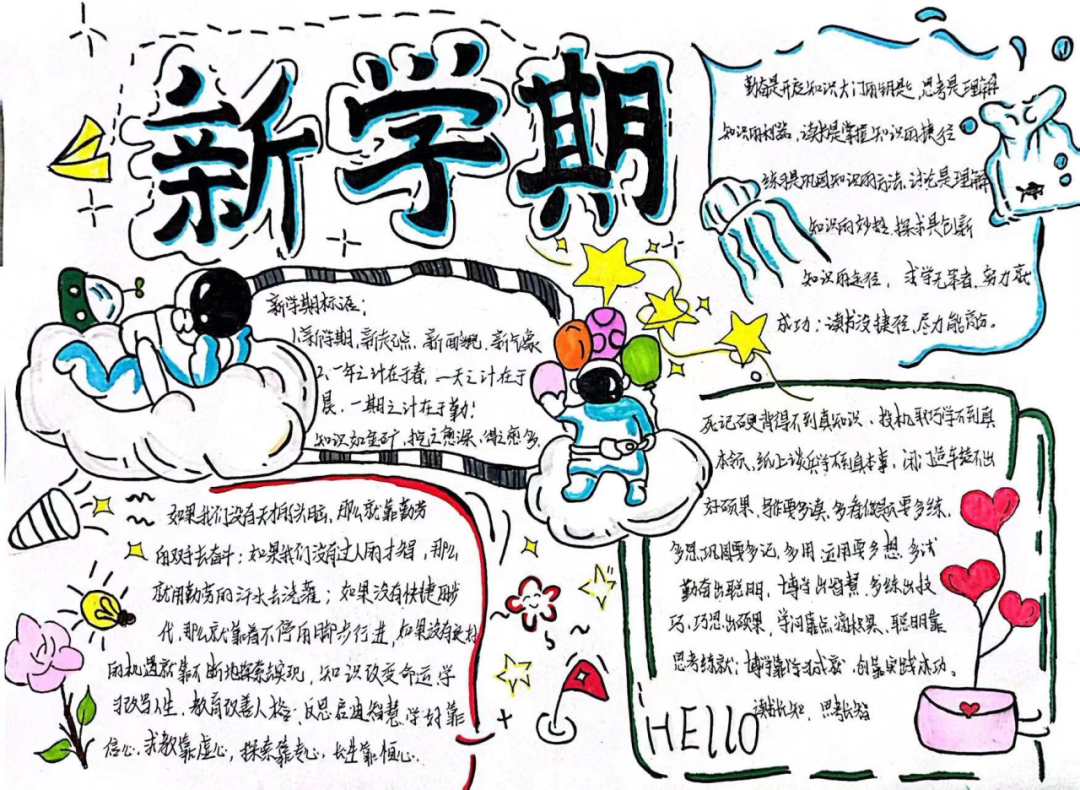 新学期
勤奋是开启知识大门的钥匙,思考是理解
知识的机器,读书是掌握知识的捷径
练习是巩固知识的方法,讨论是理解
知识的妙招,探求是创新
知识的途径, 求学无笨者,努力就
成功;读书没捷径,尽力能高占。
新学期标语:
1、新学期、新起点、新面貌、新气象
2、一年之计在于春,一天之计在于
晨,一期之计在于勤!
知识如金矿,挖之愈深,得之愈多
死记硬背得不到真知识、投机取巧学不到真
本领、纸上谈兵学不到真本事,闭门造车造不出
好硕果,导作要多读,多看做题要多练,
多思,巩固要多记,多用,运用要多想,多试
勤奋出聪明,博学出智慧,多练出技
巧,巧思出硕果,学问靠点滴积累、聪明靠
思考练就;博学靠学习成家,创靠实践成功。
读书长知,思考长智
如果我们没有天才的头脑,那么就靠勤劳
的双手去奋斗;如果我们没有过人的才智,那么
就用勤劳的汗水去浇灌;如果没有快捷的
代,那么就靠着不停的脚步行进,如果没有更好
的机遇就靠不断地探索实现,知识改变命运,学
习改写人生,教育改善人格;反思启迪智慧,学好靠
信心,求教靠虚心,探索靠专心,长进靠恒心.
HELLO